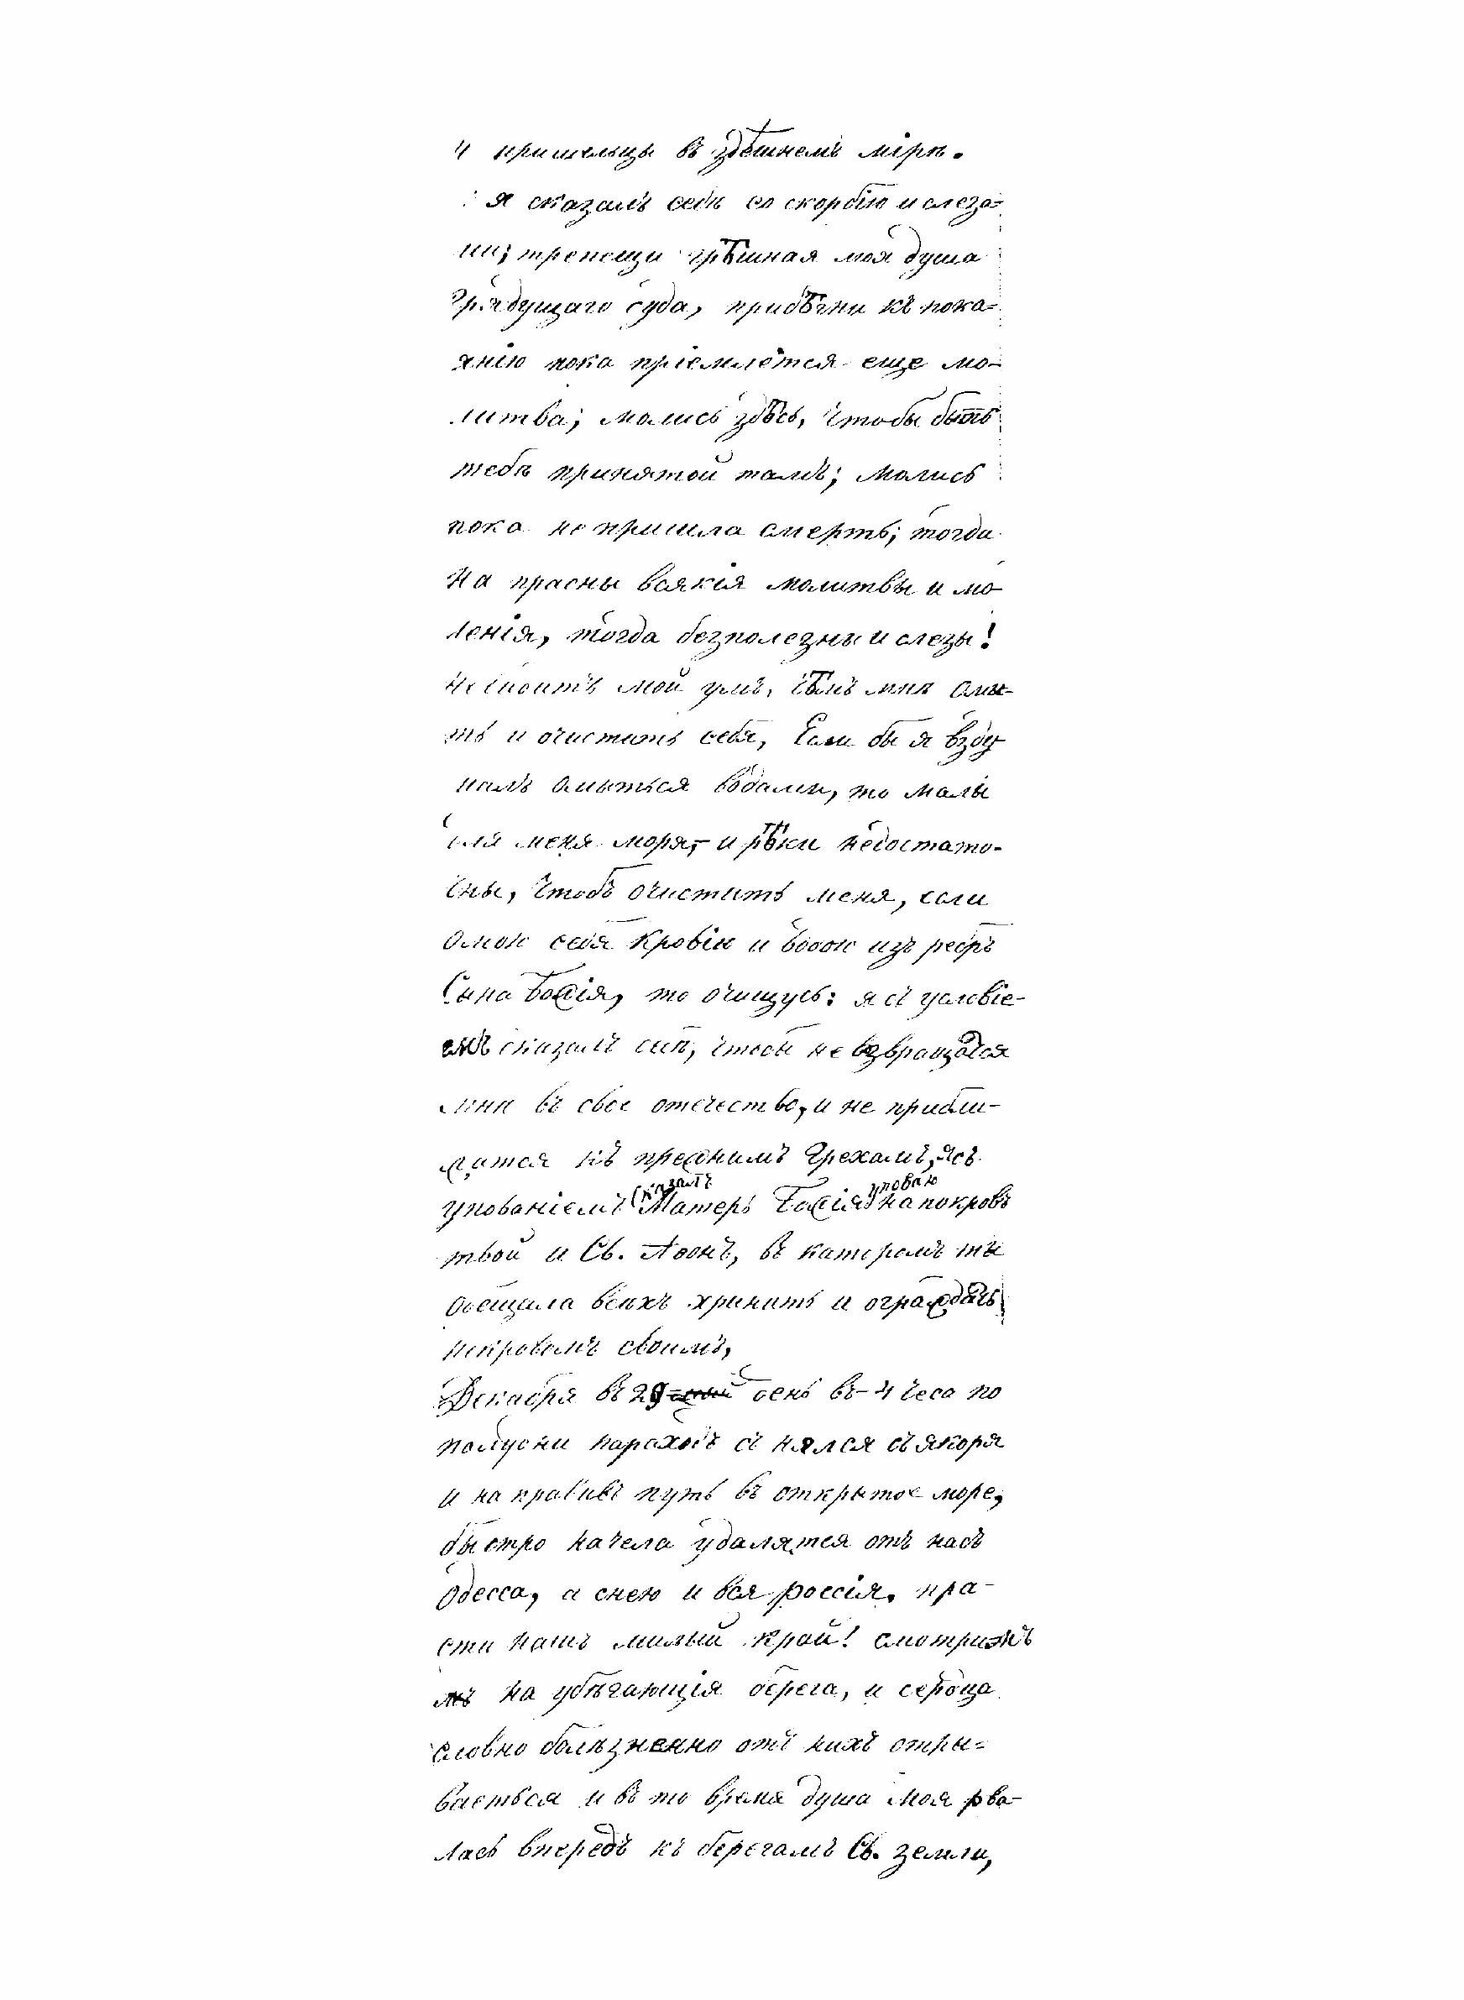 и пришельцы въ здѣшнемъ мірѣ.
я сказалъ себѣ со скорбію и слеза=
ми; трепещи грѣшная моя душа
грядущаго суда, прибѣгни къ пока=
янію пока пріемлется еще мо-
литва; молись здѣсь, чтобы быть
тебѣ принятой тамъ; молись
пока не пришла смерть; тогда
на прасны всякія молитвы и мо-
ленія, тогда безполезны и слезы!
мой умъ, чѣмъ мнѣ омы-
ть и очистить себя, Если бы я взду
малъ омыться водами, то малы
для меня моря, и рѣки недостато-
чны, чтобъ очистить меня, если
омою себя кровію и водою изъ ребръ
Сына Божія, то очищусь: я съ условіе-
емъ сказалъ сіе, чтобы не возвращатся
мнѣ въ свое отечество, и не прибли-
жатся къ прежнимъ грехамъ, я съ
упованіемъ сказалъ Матерь Божія уповаю на покровъ
твой и Св. Афонъ, въ каторомъ ты
обещала всѣхъ хранить и ограждать
покровомъ своимъ,
Декабря въ 29 день въ 4 часа по
полудни параходъ съ нялся съ якоря
и на правивъ путь въ открытое море,
быстро начела удалятся отъ насъ
Одесса, а снею и вся россія, пра-
сти нашъ милый край! смотримъ
мъ на убѣгающія берега, и сердца
словно болѣзненно отъ нихъ отры=
ваеться и въ то время душа моя рва-
лась впередъ къ берегамъ Св. земли,